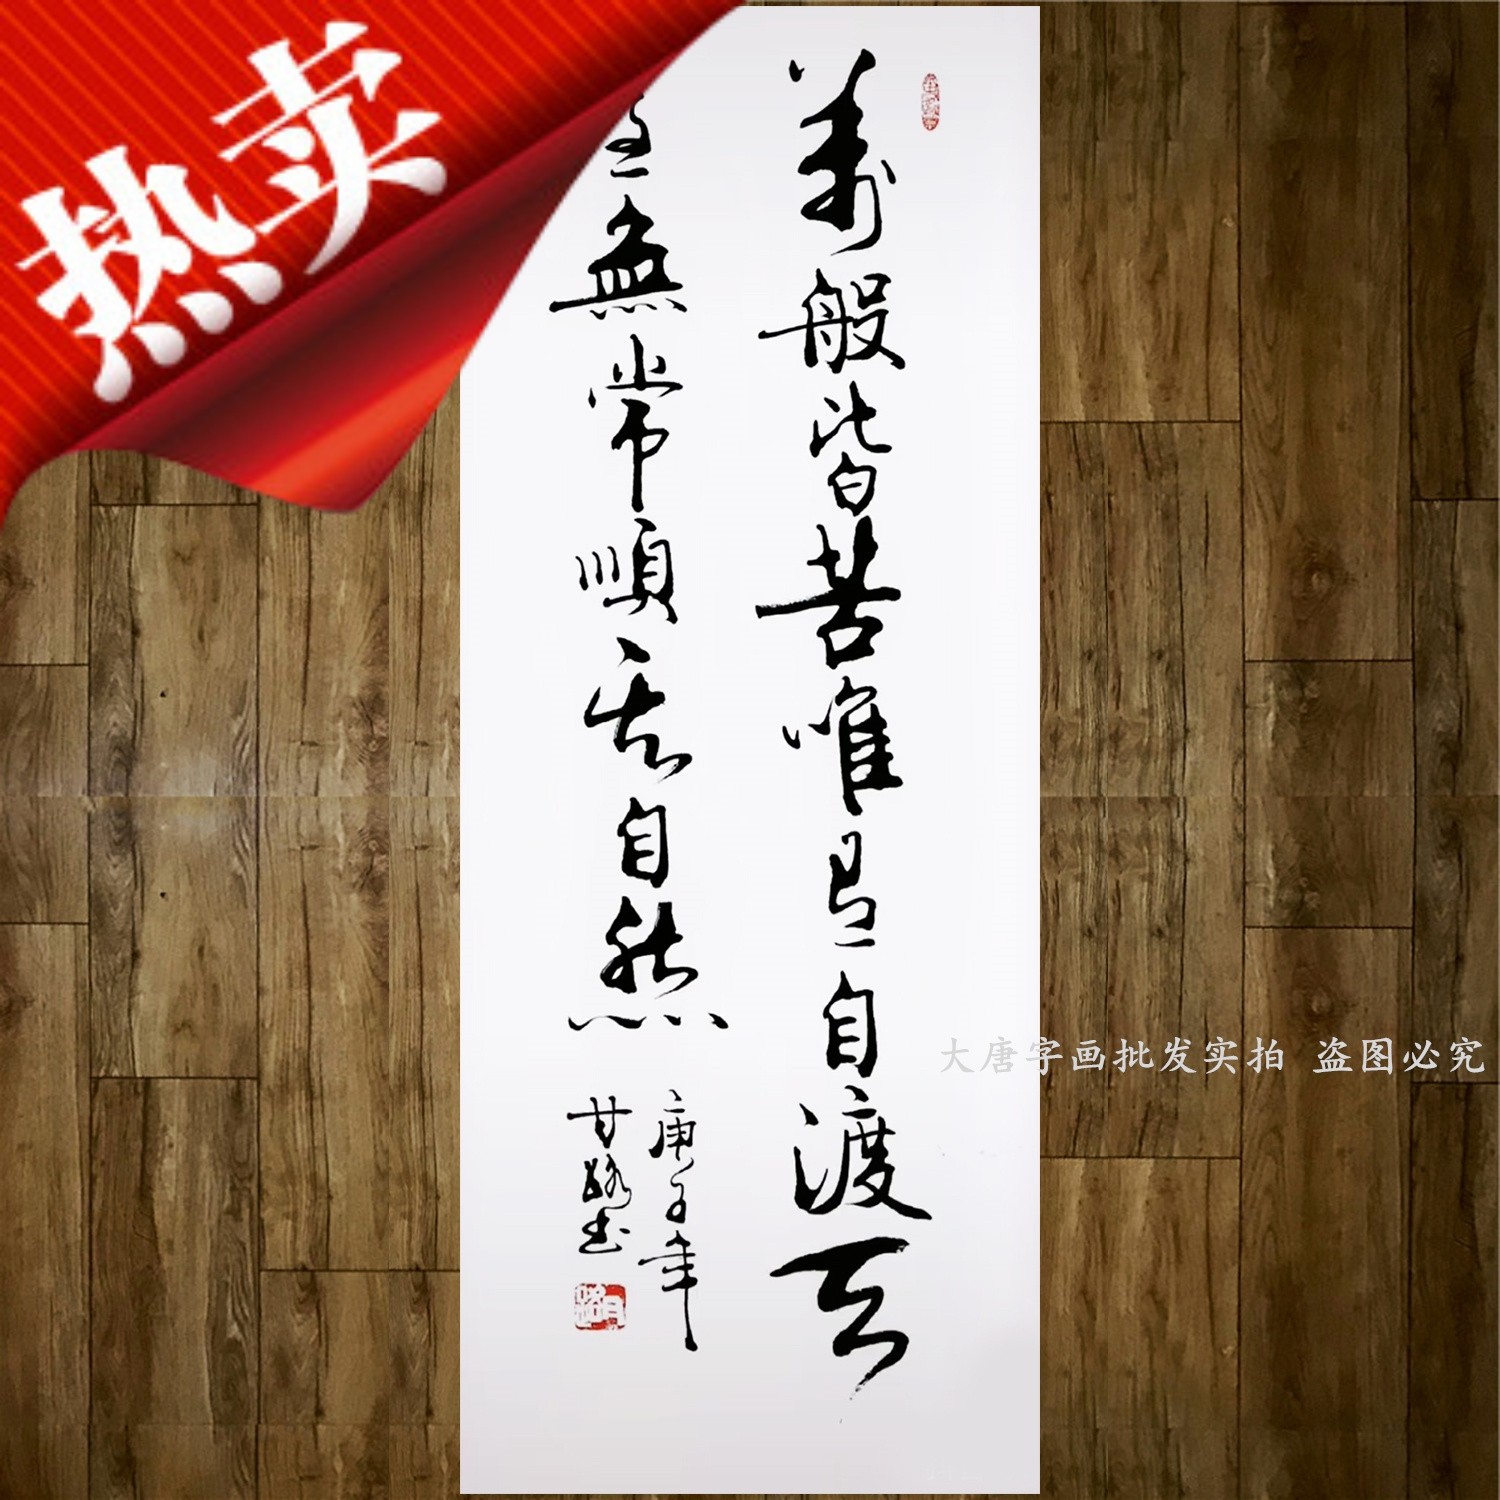 热卖
萬般皆苦唯有自渡天
無常順其自然
庚子年
甘路书
大唐字画批发实拍 盗图必究